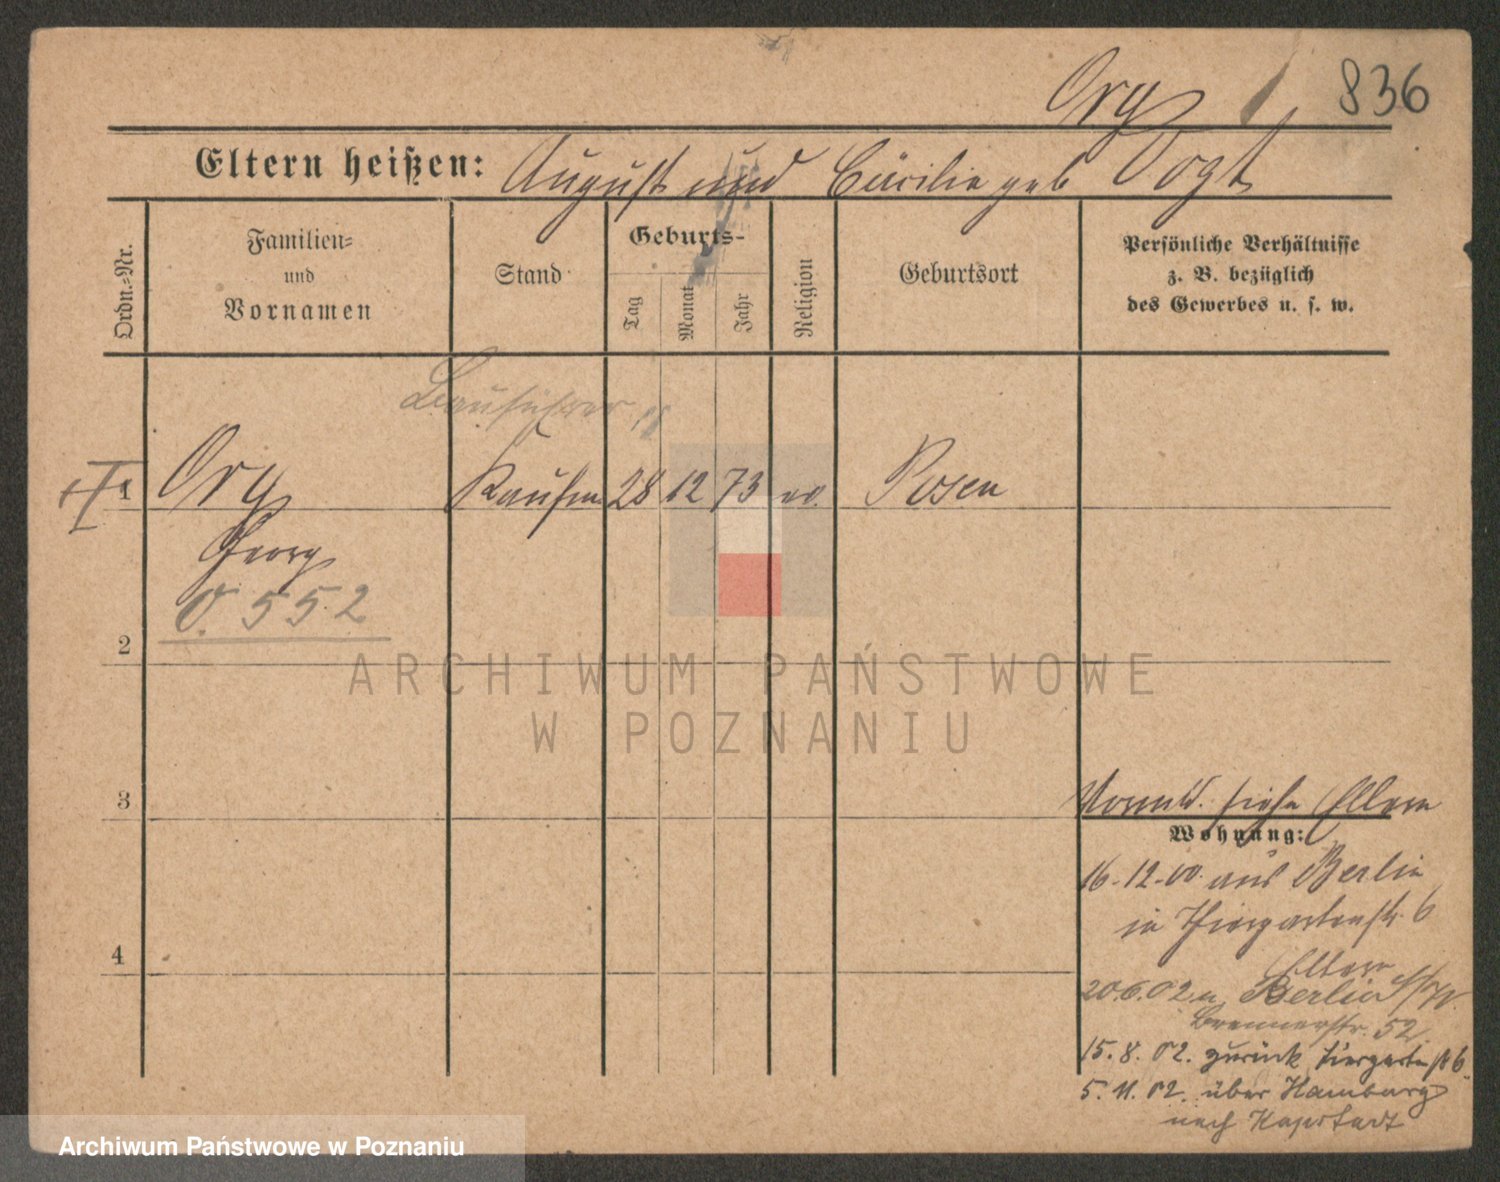 Org
836
Eltern heißen: August und Cäcilie geb Vogt
Ordn.-Nr.
Familien-
und
Vornamen
Stand
Geburts-
Tag
Monat
Jahr
Religion
Geburtsort
Persönliche Verhältnisse
z. B. bezüglich
des Gewerbes u. s. w.
Bauführer
1 Org Kaufm 28 12 73 Posen
Georg
O. 552
2
ARCHIWUM PAŃSTWOWE
W POZNANIU
3
siehe Eltern
Wohnung:
16.12.00. aus Berlin
in Thiergartenstr. 6
4
Eltern
20.6.02 n. Berlin
Brennerstr. 52
15.8.02. zurück Tiergartenstr 6.
5.11.02. über Hamburg
nach Kapstadt
Archiwum Państwowe w Poznaniu